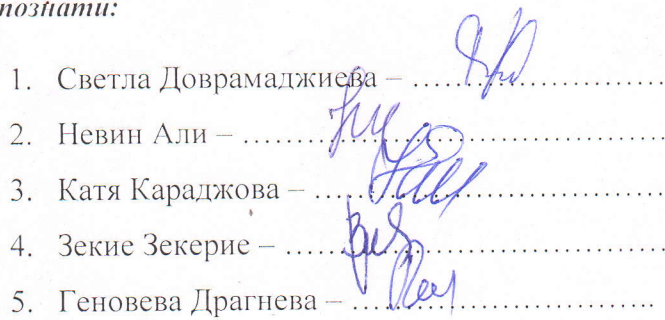 познати:
1. Светла Доврамаджиева – ............................
2. Невин Али – ............................................
3. Катя Караджова – ....................................
4. Зекие Зекерие – ......................................
5. Геновева Драгнева – ..............................